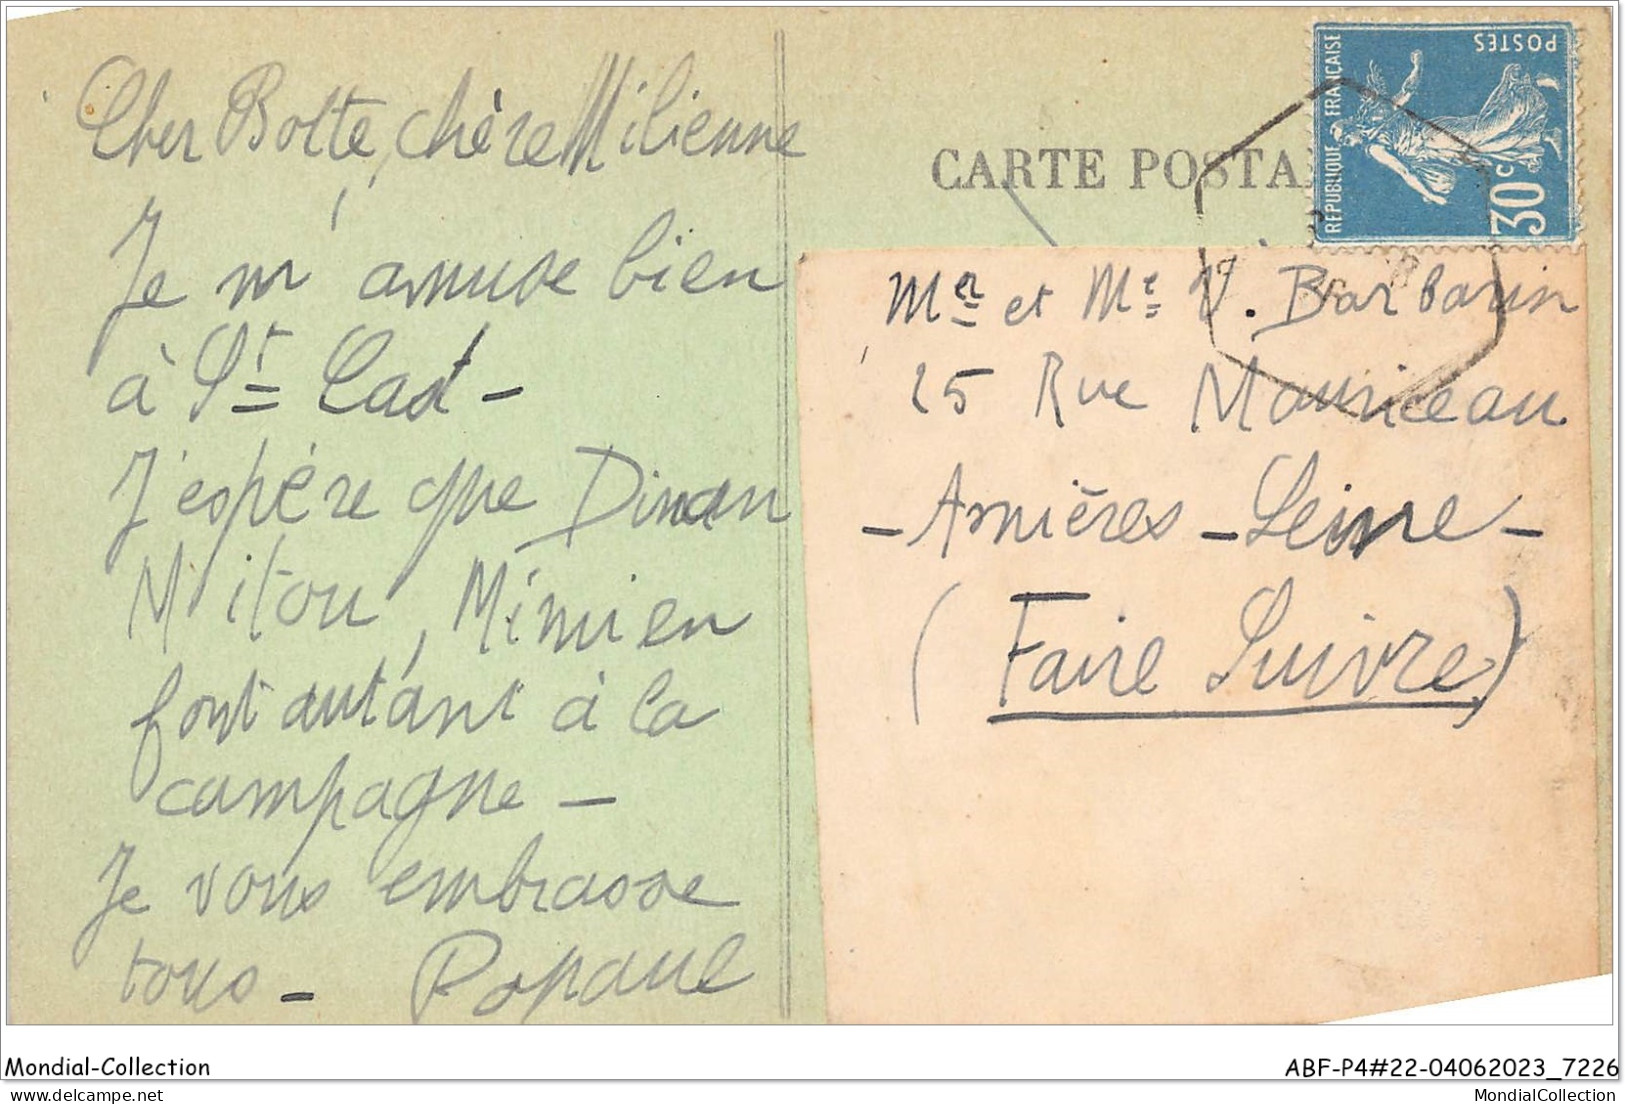 Cher Botte, chère Milienne
Je m'amuse bien
à St Cast -
J'espère que Dinan
Mitou, Mimi en
font autant à la
campagne -
Je vous embrasse
tous - Popaul
CARTE POSTA
REPUBLIQUE FRANÇAISE
POSTES
30c
Mr et Me V. Barbarin
25 Rue Mauriceau
- Asnières - Seine -
(Faire Suivre)
Mondial-Collection
ABF-P4#22-04062023_7226
delcampe.net
MondialCollection